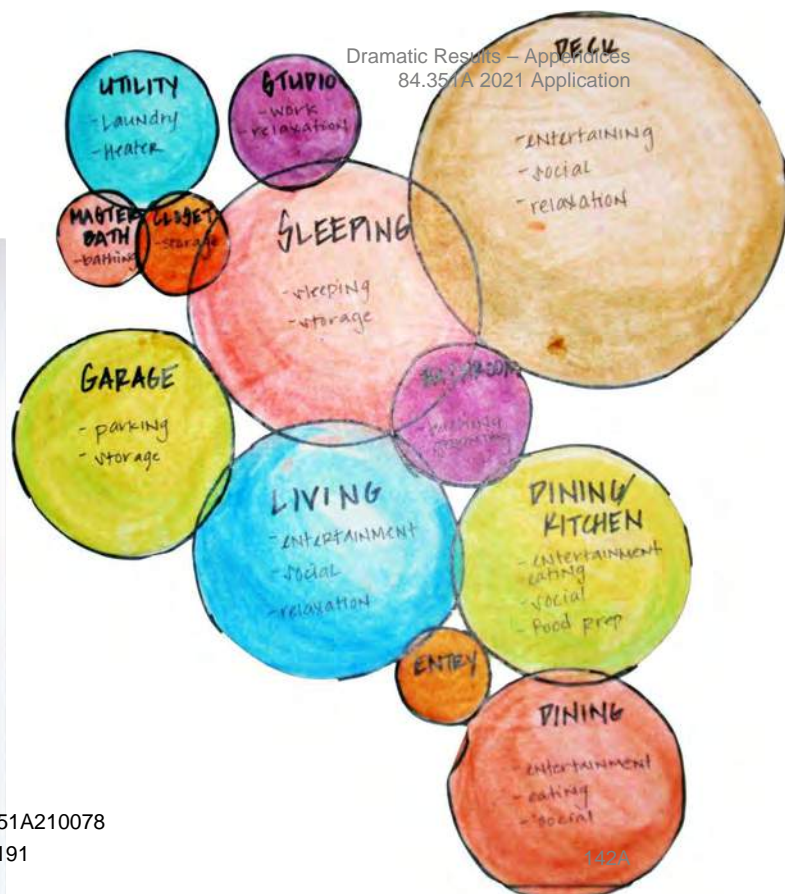 Dramatic Results – Appendices
84.351A 2021 Application
UTILITY
- Laundry
- Heater
STUDIO
- work
- relaxation
DECK
- entertaining
- social
- relaxation
MASTER
BATH
- bathing
CLOSET
- storage
SLEEPING
- sleeping
- storage
GARAGE
- parking
- storage
BATHROOM
LIVING
- ENTERTAINMENT
- social
- relaxation
DINING/
KITCHEN
- entertainment
eating
- social
- Food prep
ENTRY
DINING
- entertainment
- eating
- social
51A210078
191
142A